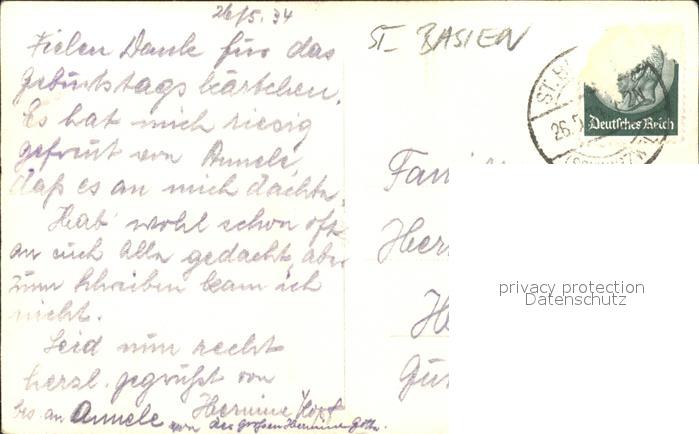 26/5. 34
Vielen Dank für das
Geburtstagskärtchen.
Es hat mich riesig
gefreut von Annele,
daß es an mich dachte.
Hab' wohl schon oft
an euch Alle gedacht, aber
zum Schreiben kam ich
nicht.
Seid nun recht
herzl. gegrüßt von
Hermine
an Annele von der großen Hermine
ST. BASIEN
ST. B
26.5.
Deutsches Reich
Fam
Her
H
privacy protection
Datenschutz